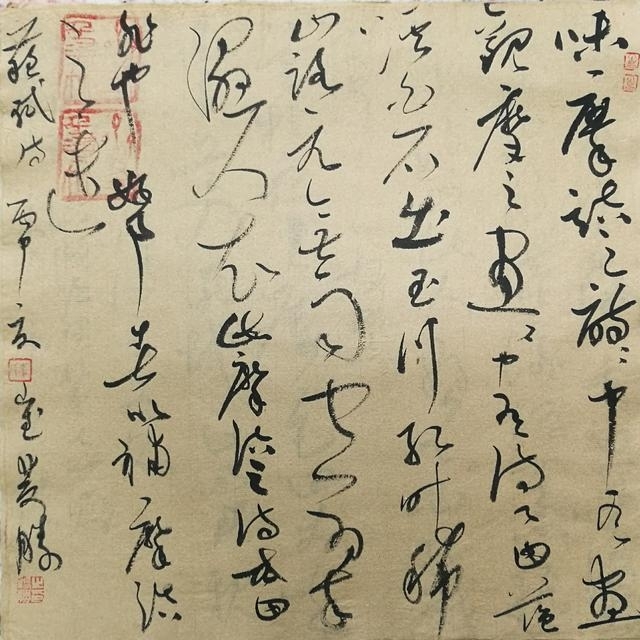 味摩詰之詩〻中有畫
觀摩之畫〻中有詩〻曰藍
溪白石出玉川紅叶稀
山路元無雨空翠
濕人衣此摩詰之詩或曰
非也好事者以補摩詰
之遺
蘇軾詩丙申夏